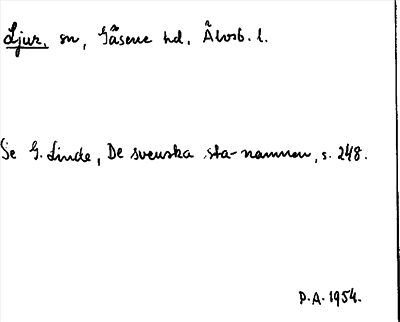 Ljur, sn, Gäsene hd, Älvsb. l.
Se G. Linde, De svenska sta-namnen, s. 248.
P.A. 1954.